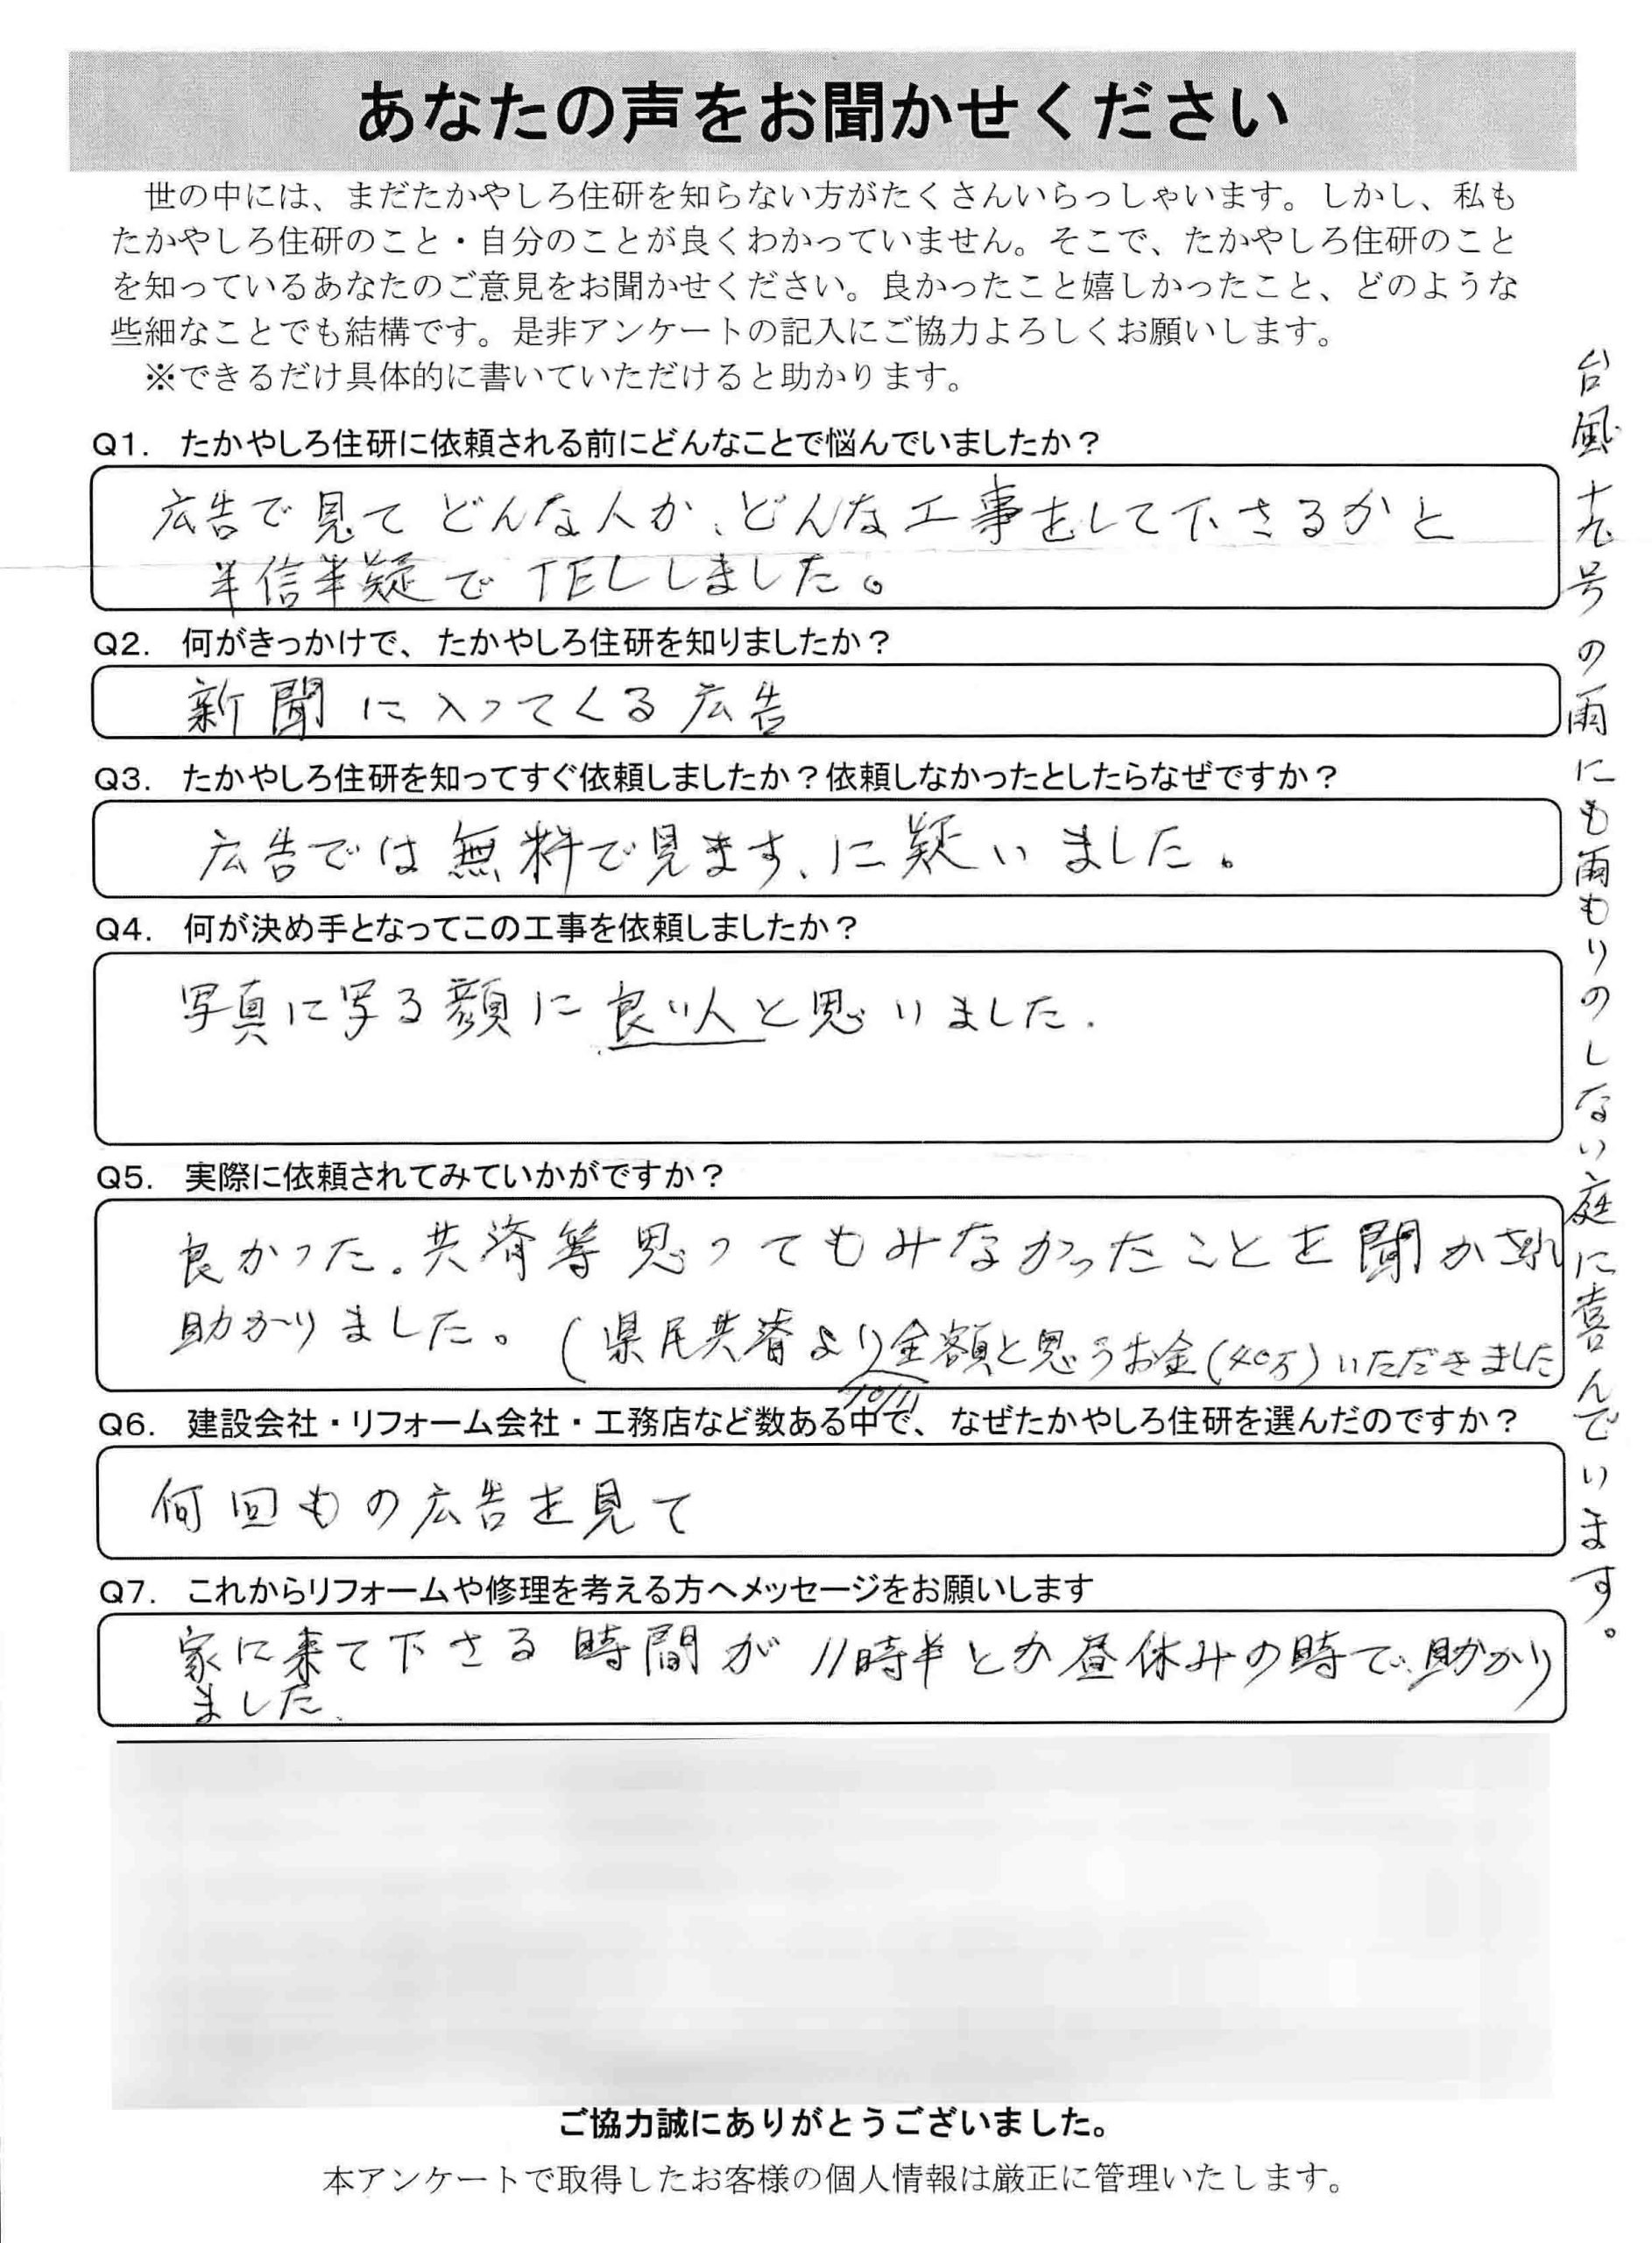 あなたの声をお聞かせください
世の中には、まだたかやしろ住研を知らない方がたくさんいらっしゃいます。しかし、私も
たかやしろ住研のこと・自分のことが良くわかっていません。そこで、たかやしろ住研のこと
を知っているあなたのご意見をお聞かせください。良かったこと嬉しかったこと、どのような
些細なことでも結構です。是非アンケートの記入にご協力よろしくお願いします。
※できるだけ具体的に書いていただけると助かります。
Q1. たかやしろ住研に依頼される前にどんなことで悩んでいましたか？
広告で見てどんな人か、どんな工事をして下さるかと
半信半疑でTELしました。
Q2. 何がきっかけで、たかやしろ住研を知りましたか？
新聞に入ってくる広告
Q3. たかやしろ住研を知ってすぐ依頼しましたか？依頼しなかったとしたらなぜですか？
広告では無料で見ます、に疑いました。
Q4. 何が決め手となってこの工事を依頼しましたか？
写真に写る顔に良い人と思いました.
Q5. 実際に依頼されてみていかがですか？
良かった。共済等思ってもみなかったことを聞かされ
助かりました。(県民共済より金額と思うお金(40万)いただきました
10/11
Q6. 建設会社・リフォーム会社・工務店など数ある中で、なぜたかやしろ住研を選んだのですか？
何回もの広告を見て
Q7. これからリフォームや修理を考える方へメッセージをお願いします
家に来て下さる時間が11時半とか昼休みの時で、助かり
ました、
台風十九号の雨にも雨もりのしない庭に喜んでいます。
ご協力誠にありがとうございました。
本アンケートで取得したお客様の個人情報は厳正に管理いたします。